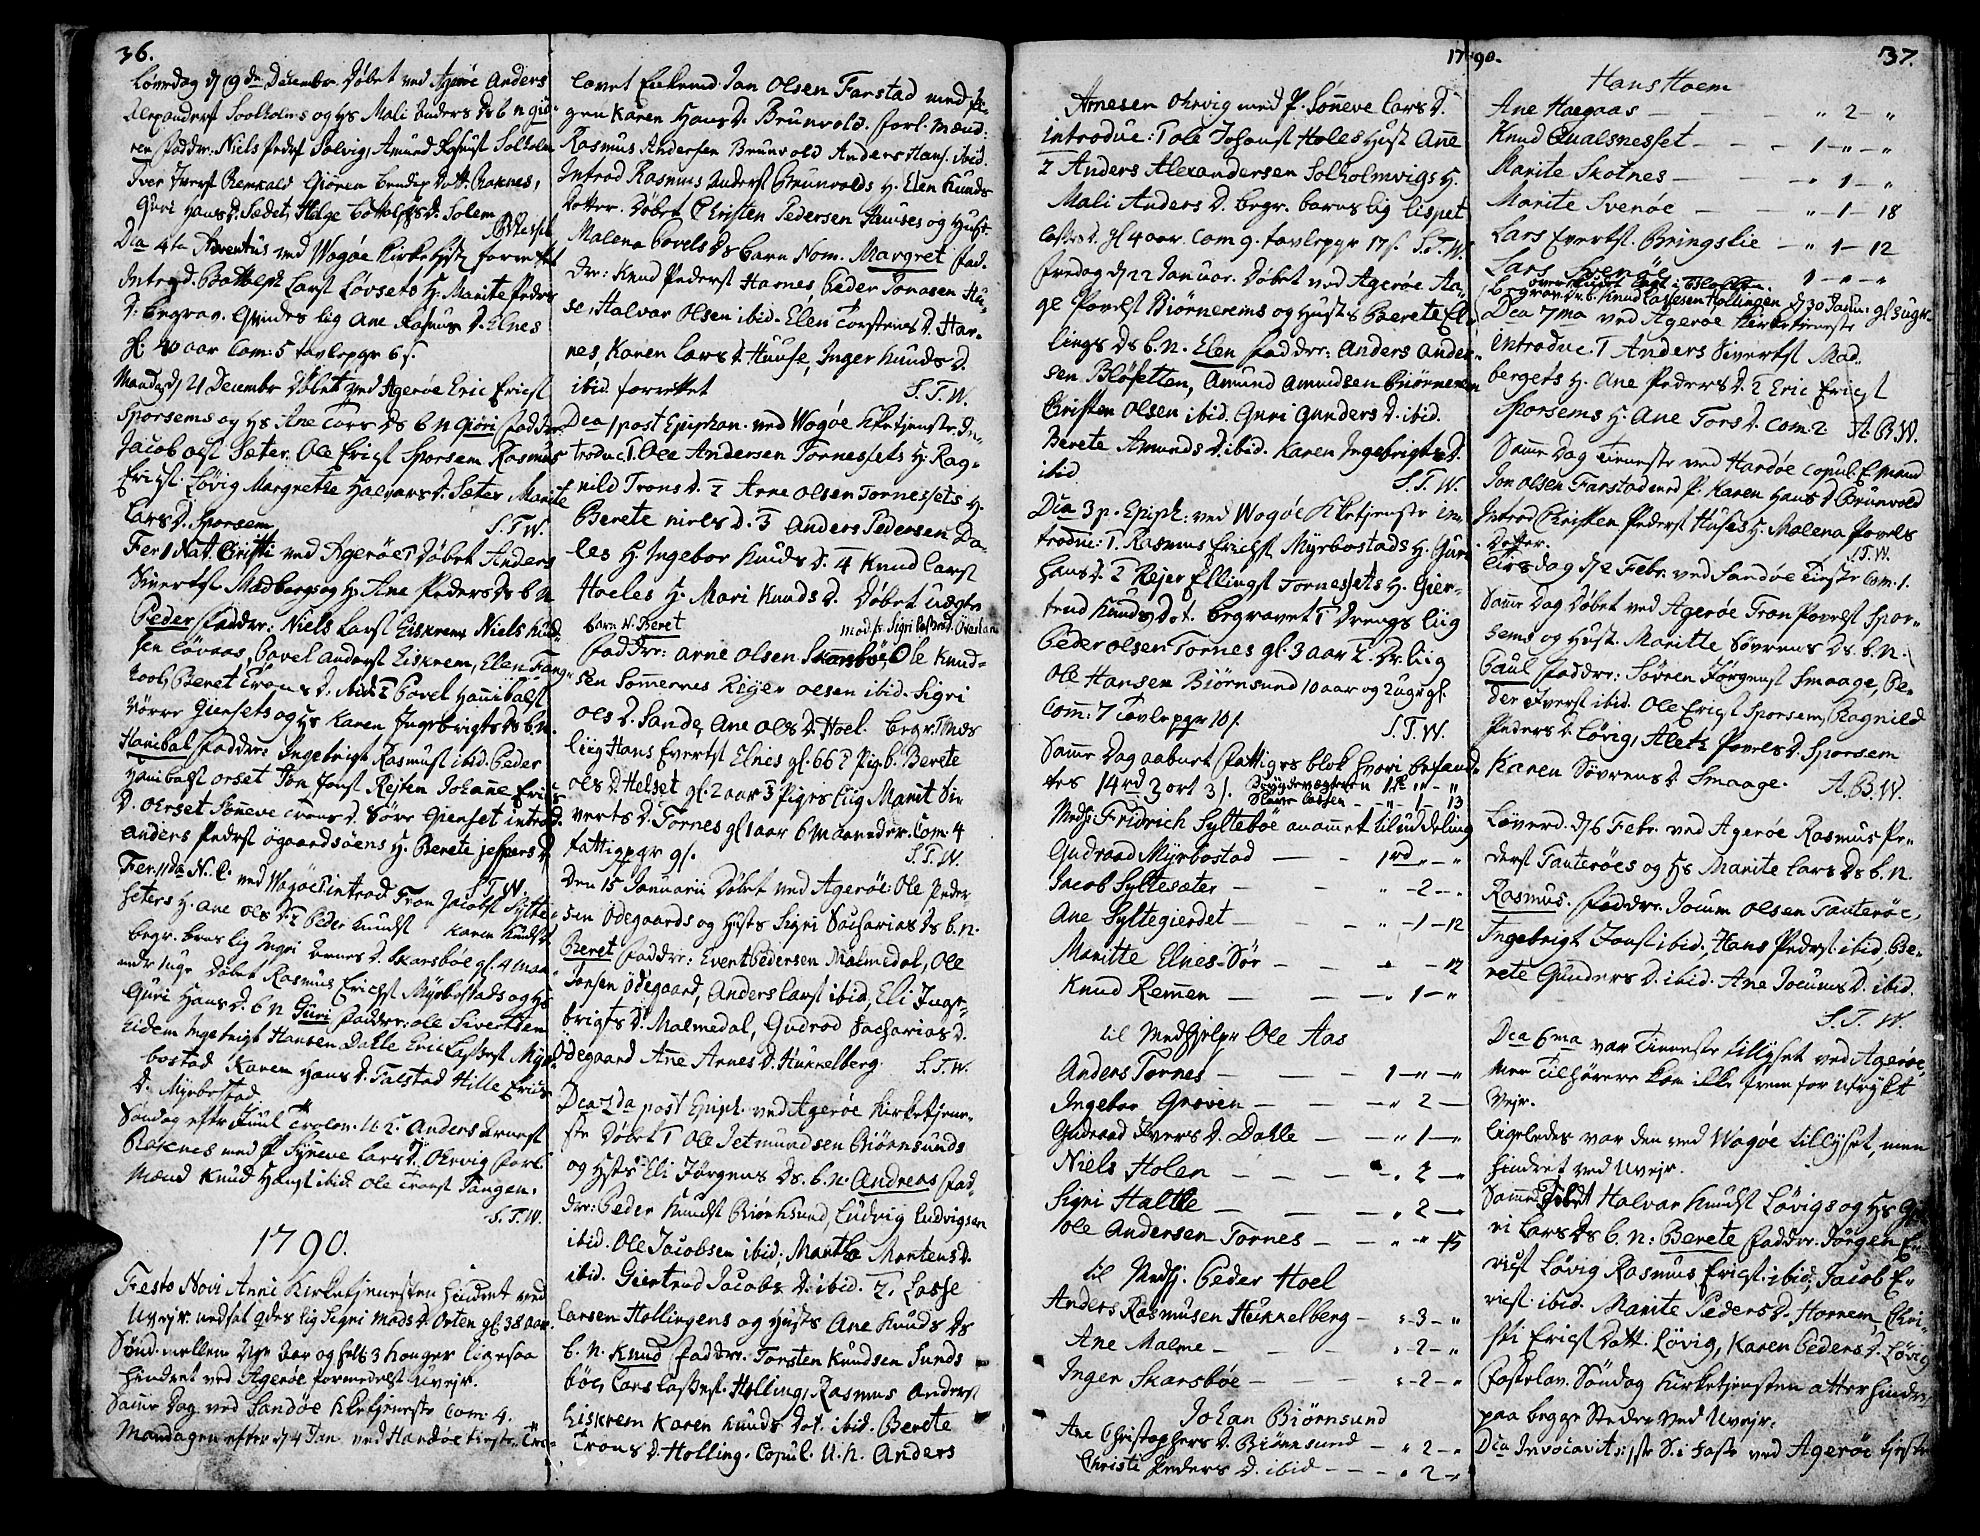 36.
Løverdag d 19de Decembr Døbet ved Agerøe Anders
Alexanders Soolholms og Hs Mali Anders Ds b n Giø-
ren Faddr: Niels Peders Solvig, Amund Rasmus Solholm
Iver Ivers Remvald Giøren Bendix Dott. Raknes,
Guri Hans D. Sædet, Helge Bottolphs D. Solem
Dca 4te Adventus ved Wogøe Kirke forrettet
Introd. Bottolph Lars Løvsets H. Marite Peders
D. begrav. Gundes lig Ane Rasmus D. Elnes
gl 40 aar Com: 5 tavlepge 6 s.
Mandag d 21 Decembr Døbet ved Agerøe Eric Erics
Sporsems og Hs Ane Tors Ds b n Giøri Faddr:
Jacob ols Sæter. Ole Erics Sporsem Rasmus
Erics. Løvig Margrethe Halvars D. Sæter Marite
Lars D. Sporsem
S. T. W.
Fer 1 Nat. Christi ved Agerøe Døbet Anders
Sivertss Madbergs og Hs Ane Peders Ds b n
Peder Faddr: Niels Lars Eiskrem Niels Knud-
sen Løvaas, Povel Anders Eiskrem, Elen Tang-
 Beret Trons D. ibid. 2 Povel Hanibals
Nørre Giensets og Hs Karen Ingebrigts Ds b.n.
Hanibal Faddr: Ingebrigt Rasmus ibid. Peder
Hanibals Orset Jon Jons Rejten Johanne Erics
D. Ohrset Sønneve Trons D. Søre Gienset introd.
Anders Peders Øgaardsøens H. Berete Jespers D.
Fer. 11da N. C. ved Wogøe introd Tron Jacobs Sylte-
S. T. W.
seters H. Ane ols D. 2 Peder Knuds Karen Knuds D
begr. barns lig Ingri Arnes D. Skarsbøe gl. 4 maa-
neder Døbet Rasmus Erics Myrbostads og Hs
Guri Hans D. b n Guri Faddr: Ole Sivertsen
ibidem Ingebrigt Hansen Dahle Eric Lasses Myr-
bostad Karen Hans D. Talstad Hille Erics
D. Myrbostad
Søndag efter Juul Trolov. U: 2. Anders Arnes
Raknes med P. Synneve Lars D. Ohrvig Forl.
Mænd Knud Hans ibid. Ole Trons Tangen.
S. T. W.
1790.
Festo Novi Anni Kirketjenesten hindret ved
Uvejr. nedsat qdes lig Signi Mads D. Orten gl. 38 aar.
Sønd. mellem Nye Aar og hell. 3 Konger ligesaa
hindret ved Agerøe formedelst Uvejr.
Samme Dag ved Sandøe Kketjeneste Com: 4.
Mandagen efter d 4 Jan. ved Hardøe tieneste. Tro-
lovet Enkemd. Jon Olsen Farstad med Pi-
gen Karen Hans D. Brunvold. Forl. Mænd:
Rasmus Andersen Brunvold Anders Hans. ibid.
Introd Rasmus Anders Brunvolds H. Elen Knuds
Dotter. Døbet Christen Pedersen Huuses og Hust.
Malena Povels Ds barn Nom. Margret Fad-
dr: Knud Peders Harnes Peder Jonasen Hu-
se, Halvar Olsen ibid. Elen Torstens D. Har-
nes, Karen Lars D. Huuse, Inger Knuds D.
ibid. forrettet
S. T. W.
Dca 1 post Epiphan. ved Wogøe Kketjeneste. In-
troduc. 1. Ole Andersen Tornessets H. Rag-
nild Trons D. 2 Arne Olsen Tornessets H.
Berete Niels D. 3 Anders Pedersen Da-
les H. Ingebor Knuds D. 4 Knud Lars
Hoeles H. Mari Knuds D. Døbet Uægte
barn N. Beret
Faddr: Arne Olsen Skarsbøe Ole Knud-
sen Sommernes Rejer Olsen ibid. Sigri
Ols D. Sande, Ane Ols D. Hoel. begr. Mds
liig Hans Everts Elnes gl. 66 2 Pigb. Berete
Ols D. Helset gl. 2 aar 3 Piges liig Marit Si-
verts D. Tornes gl 1 aar 6 Maaneder. Com: 4
fattigpgr 9 s.
S. T. W.
Den 15 Januarii Døbet ved Agerøe: Ole Peder-
sen Ødegaards og Husts Sigri Sacharias Ds b. n.
Beret Faddr: Evert Pedersen Malmedal, Ole
Jonsen Ødegaard, Anders Lars ibid, Eli Inge-
brigts D. Malmedal, Gudrod Sacharias D.
Ødegaard Ane Arnes D. Hukkelberg. S. T. W.
Dca 2da post Epiph. ved Agerøe Kirketjene-
ste Døbet 1 Ole Jetmundsen Biørnsunds
og Husts Eli Jørgens Ds. b. n. Andreas Fad-
dr: Peder Knuds Biørnsund, Ludvig Ludvigsen
ibid. Ole Jacobsen ibid, Martha Mortens D.
ibid. Giertrud Jacobs D. ibid. 2. Lasse
Larsen Hollingens og Husts Ane Knuds Ds
b. n. Knud Faddr. Torsten Knudsen Sunds
bøe, Lars Lasses. Holling, Rasmus Anders
Eiskrem Karen Knuds Dot. ibid. Berete
Trons D. Holling. Copul. U. n. Anders
1790.
Arnesen Ohrvig med P. Sønneve Lars D.
introduc: Tole Johans Holes Hust Ane
2 Anders Alexandersen Solholmvigs H.
Mali Anders D. begr. barns lig Lispet
Lasses D. gl 4 aar. Com 9. tavlepgr 17 s. S. T. W.
Fredag d 22 Januar. Døbet ved Agerøe Aa-
ge Povels Biørnerems og Husts Berete El-
lings Ds b. n. Elen Faddr: Anders Ander-
sen Bløsetten, Amund Amundsen Biørnerem
Christen Olsen ibid. Guri Gunders D. ibid.
Berete Amunds D. ibid. Karen Ingebrigts D.
ibid
S. T. W.
Dca 3 p. Epiph: ved Wogøe Kketjeneste in-
troduc: 1. Rasmus Erics Myrbostads H. Guri
Hans D. 2 Rejer Ellings Tornessets H. Gier-
trud Knuds Dot. begravet 1 Drengs liig
Peder Olsen Tornes gl. 3 aar 2. Dr. liig
Ole Hansen Biørnsund 10 aar og 2 uger gl.
Com: 7 Tavlepgr 10 s.
S. T. W.
Samme Dag aabnet Fattiges blok hvori befand-
tes 14 rd 3 ort 3 s.
Meds: Fridrich Syltebøe anammet til uddeling
Gudraad Myrbostad — — 1 rd „ — „
Jacob Syltesæter — — „ — 2 — „
Ane Syltegierdet — — — „ — 1 — 12
Maritte Elnes-Sør — — — „ — 12
Knud Remmen — — — „ 1 — „
til Medhjelper Ole Aas
Anders Tornes — — — 1 — „ — „
Ingebor Groven — — — „ 2 —
Gudraad Ivers D. Dahle — — „ 1 — „
Niels Holen — — — „ 2 — „
Sigri Haltle — — — „ 2 — „
Ole Andersen Tornes — — „ „ 15
til Medhj. Peder Hoel
Anders Rasmusen Hukkelberg — „ 3 — „
Ane Malme — — — „ 2 — „
Inger Skarsbøe — — — „ 2 — „
Johan Biørnsund
Ane Christophers D. Biørnsund — „ 2 — „
Christi Peders D. ibid — — „ 2 — „
37.
Hans Hoem
Ane Haegaas — — — „ 2 — „
Knud Qualsnesset — — — 1 — „ — „
Marite Skotnes — — — „ 1 — „
Marite Svenøe — — — „ 1 — 18
Lars Everts. Bringslie — „ 1 — 12
Lars Svenøe 1 — „ — „
begrav. Dr. b. Knud Lassesen Hollingen d 30 Janu: gl 3 uger
Dca 7ma ved Agerøe Kirketjeneste
introduc. 1 Anders Siverts Mad-
bergets H. Ane Peders D. 2 Eric Erics
Sporsems H. Ane Tors D. Com: 2 A. B. W.
Samme Dag Tieneste ved Hardøe Copul. E. Mand
Jon Olsen Farstad med P. Karen Hans D. Brunvold
Introd Christen Peders Huses H. Malena Povels
Dotter.
S. T. W.
Tirsdag d 2 Febr. ved Sandøe Tieneste Com: 1.
Samme Dag Døbet ved Agerøe Tron Povels Spor-
sems og Hust. Maritte Søvrens Ds. b. n.
Paul Faddr: Søvren Jørgens Smaage, Pe-
der Ivers ibid. Ole Erics Sporsem, Ragnild
Peders D. Løvig, Alethe Povels D. Sporsem
Karen Søvrens D. Smaage. A. B. W.
Løverd. d 6 Febr. ved Agerøe Rasmus Pe-
ders Tanterøes og Hs Marite Lars Ds b. n.
Rasmus. Faddr. Jocum Olsen Tanterøe,
Ingebrigt Jons ibid, Hans Peders ibid, Be-
rete Gunders D. ibid. Ane Jocums D. ibid.
S. T. W.
Dca 6ma var Tieneste tillyset ved Agerøe,
men Tilhørere kom ikke frem for Ustyrligt
Vejr.
ligeledes var den ved Wogøe tillyset, men
hindret ved Uvejr.
Samme Døbt Halvar Knuds Løvigs og Hs Gu-
ri Lars Ds b. n: Berete Faddr: Jørgen En-
rics Løvig Rasmus Erics ibid, Jacob E-
rics: ibid. Marite Peders D. Horrem, Chri-
sti Erics Datt. Løvig, Karen Peders D. Løvig
Fastelav. Søndag Kirketjensten atter hindret
paa begge Steder ved Uvejr.
Dca Invocavit: 1ste S. i Faste ved Agerøe tjeneste